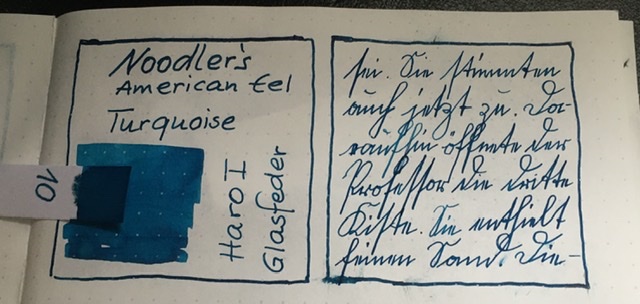 Noodler's
American Eel
Turquoise
10
Haro I
Glasfeder
sei. Sie stimmten
auch jetzt zu. Da-
raufhin öffnete der
Professor die dritte
Kiste. Sie enthielt
feinen Sand. Die-